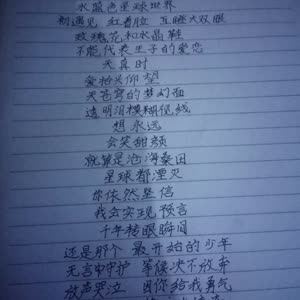 水蓝色星球世界
初遇见 红着脸 互瞪大双眼
玫瑰花和水晶鞋
不能代表王子的爱恋
天真时
爱将兴仰望
天苍穹的梦幻面
透明泪模糊视线
想永远
会笑甜颜
就算是沧海桑田
星球都湮灭
你依然坚信
我会实现预言
千年转眼瞬间
还是那个 最开始的少年
无言中守护 等候决不放弃
放声哭泣 因你给我勇气